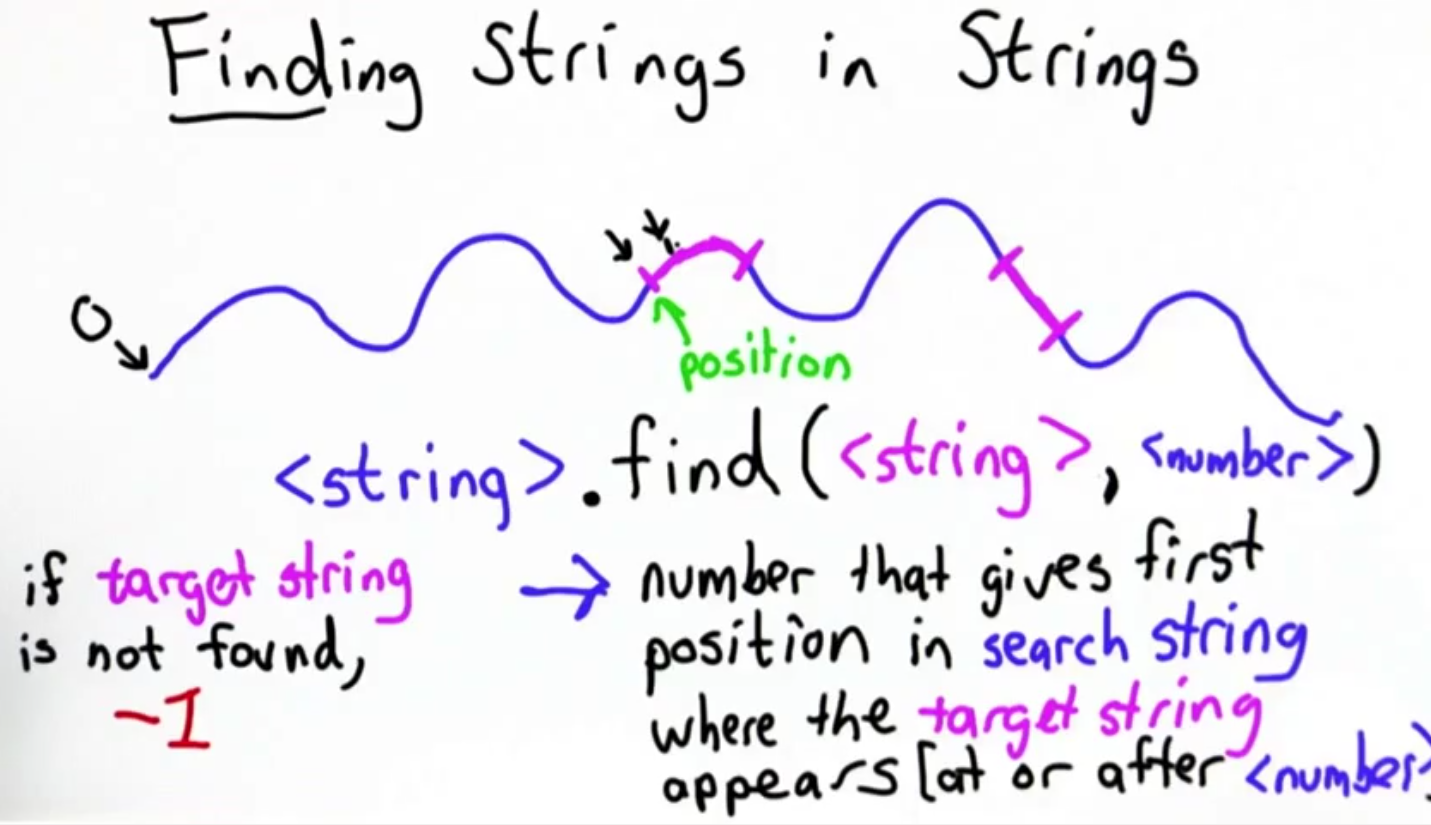 Finding Strings in Strings
0
position
<string>.find(<string>, <number>)
if target string
is not found,
-1
→ number that gives first
position in search string
where the target string
appears [at or after <number>